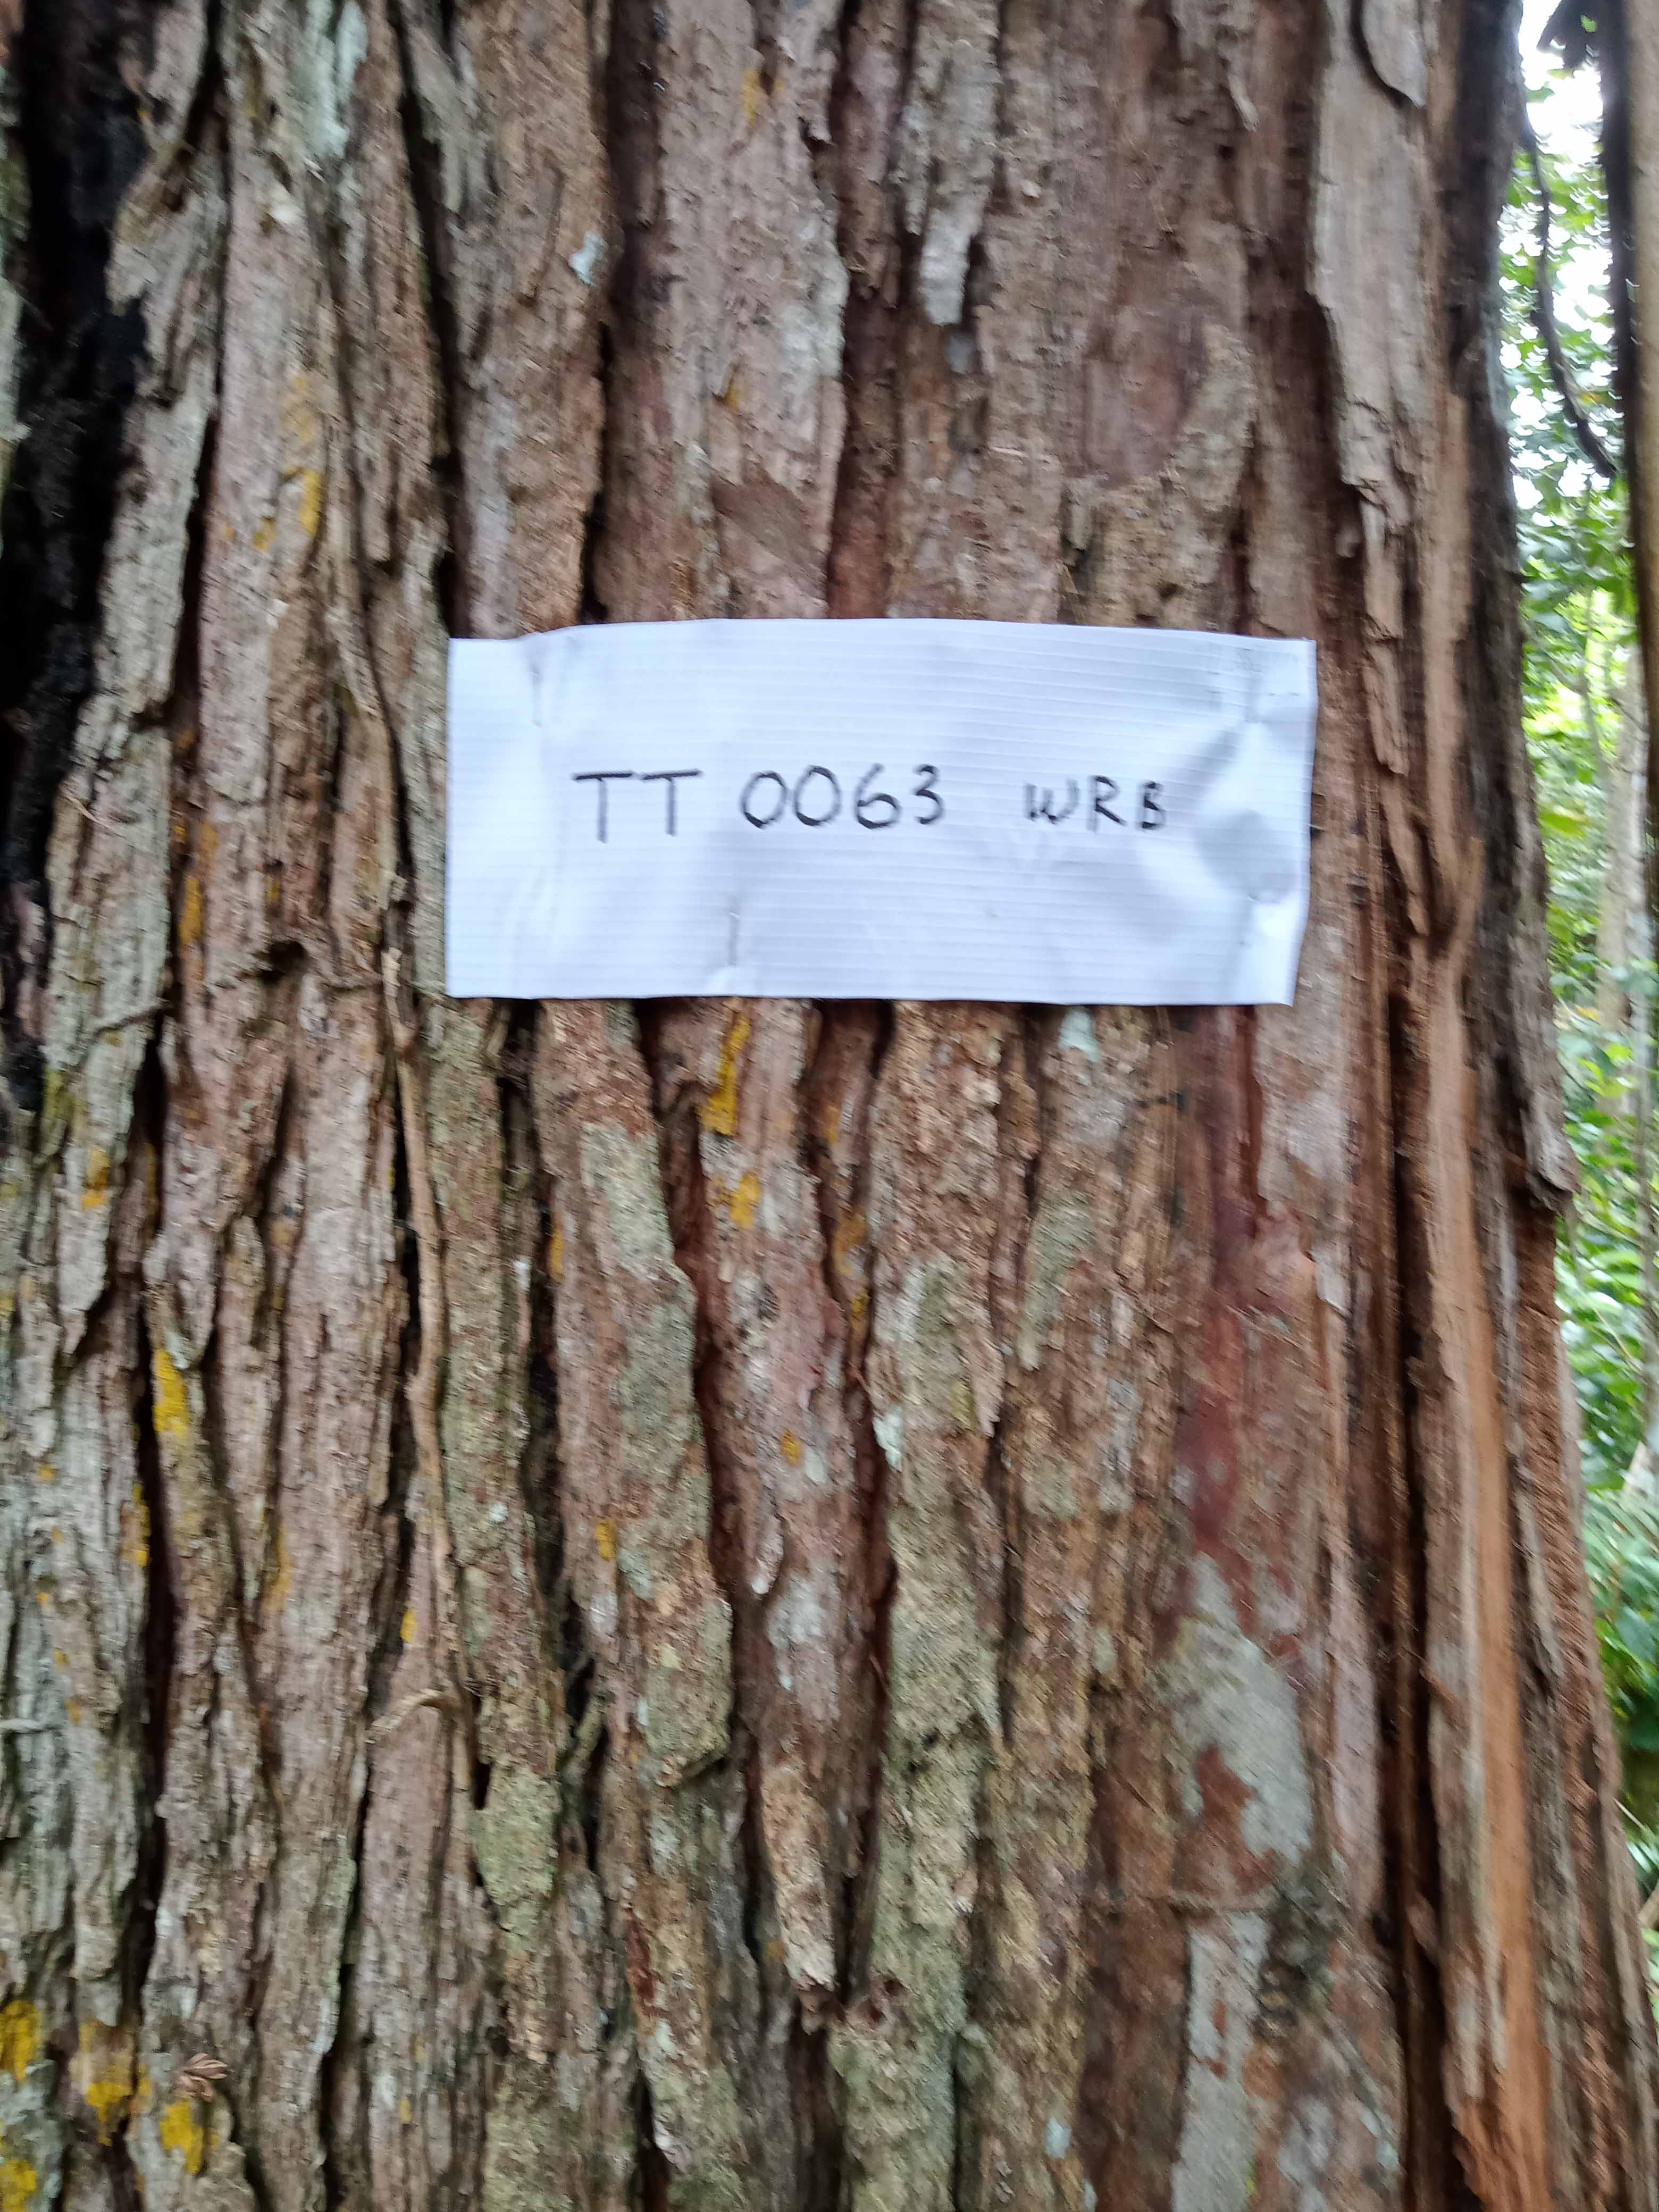 TT 0063 WRB